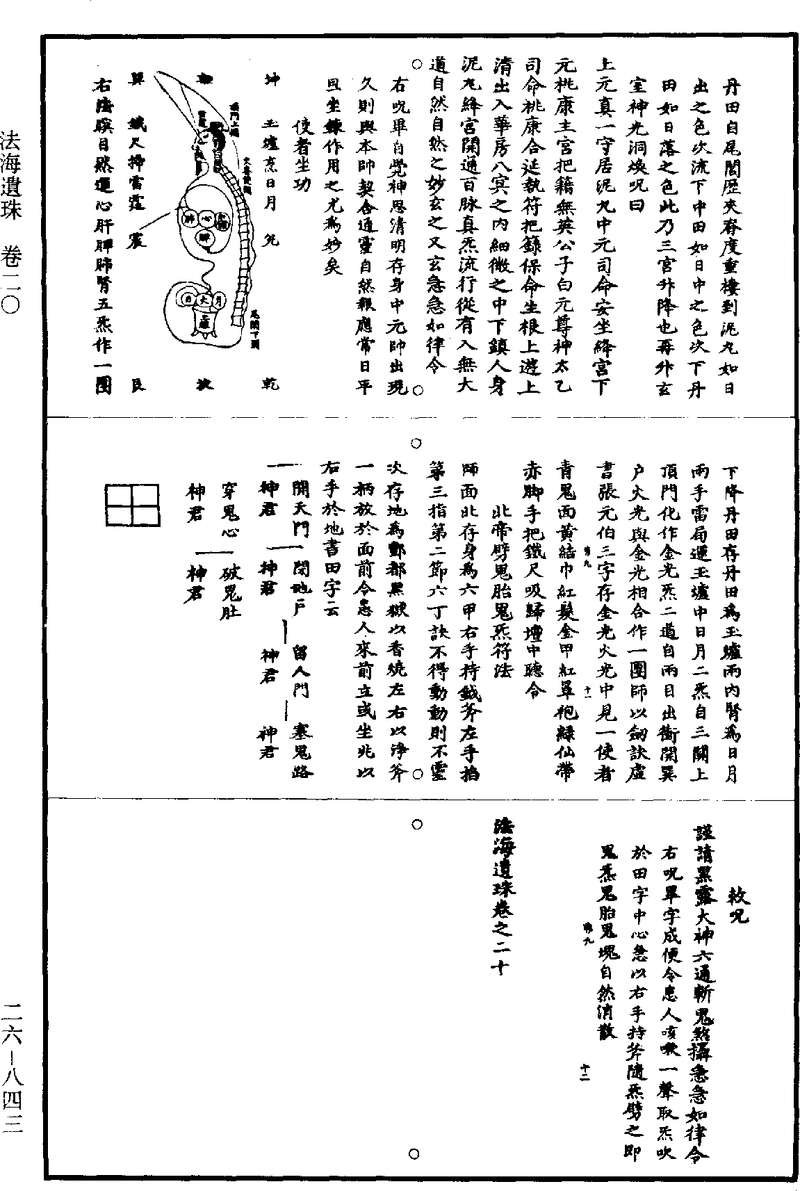 丹田自尾閭歷夾脊度重樓到泥丸如日
出之色次流下中田如日中之色次下丹
田如日落之色此乃三宮升降也再升玄
室神光洞煥呪曰
上元真一守居泥丸中元司命安坐絳宮下
元桃康主宮把籍無英公子白元尊神太乙
司命桃康合延執符把籙保命生根上遊上
清出入華房八冥之內細微之中下鎮人身
泥丸絳宮開通百脉真炁流行從有入無大
道自然自然之妙玄之又玄急急如律令
右呪畢自覺神思清明存身中元帥出現
久則與本師契合通靈自然報應常日平
旦坐鍊作用之尤為妙矣
使者坐功
坤 玉爐烹日月 兌 乾
巽 鐵尺掃雷霆 震 艮
尾閭下關
心
脾
火
月
右法瞑目然運心肝脾肺腎五炁作一團
下降丹田存丹田為玉爐兩內腎為日月
兩手雷局運玉爐中日月二炁自三關上
頂門化作金光炁二道自兩目出衝開巽
户火光與金光相合作一團師以劔訣虛
書張元伯三字存金光火光中見一使者
青鬼面黃結巾紅髮金甲紅罩袍綠仙帶
赤脚手把鐵尺吸歸壇中聽令
北帝劈鬼胎鬼炁符法
師面北存身為六甲右手持鉞斧左手掐
第三指第二節六丁訣不得動動則不靈
次存地為酆都黑獄以香燒左右以淨斧
一柄放於面前令患人來前立或坐北以
右手於地書田字云
開天門 閉地户 留人門 塞鬼路
神君 神君 神君 神君
穿鬼心 破鬼肚
神君 神君
十一
敕呪
謹請黑露大神六通斬鬼煞攝急急如律令
右呪畢字成便令患人咳嗽一聲取炁吹
於田字中心急以右手持斧隨炁劈之即
鬼炁鬼胎鬼塊自然消散
十二
法海遺珠卷之二十
法海遺珠 卷二〇
二六－八四三